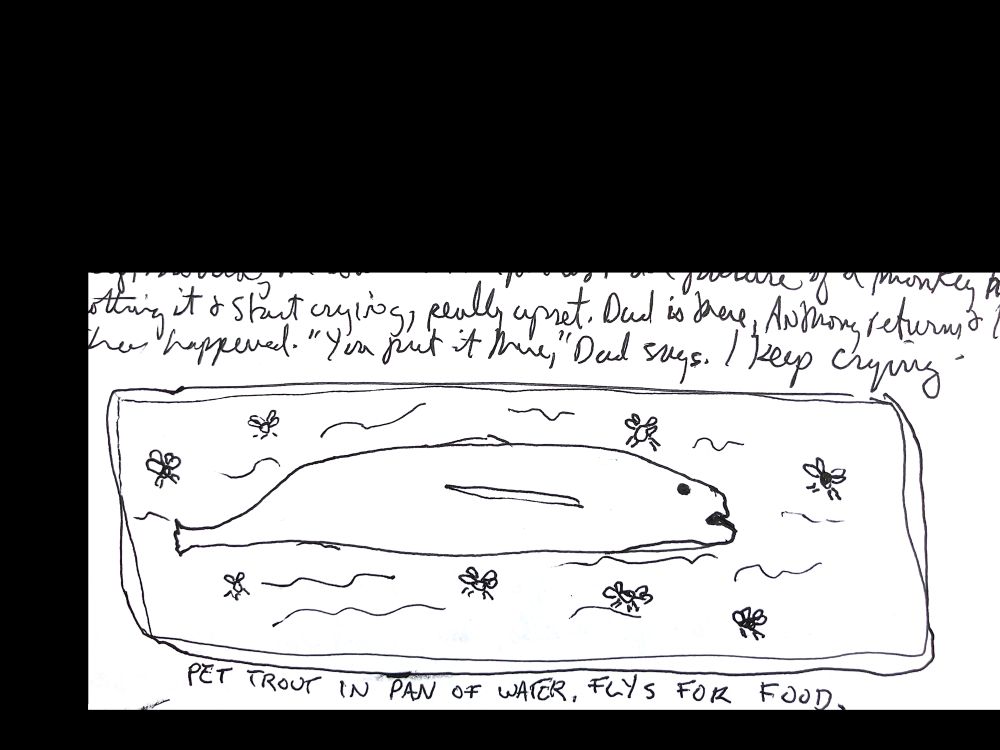 picture of a monkey
it & start crying, really upset. Dad is there, Anthony returns &
has happened. "You put it there," Dad says. I keep crying
PET TROUT IN PAN OF WATER. FLYS FOR FOOD.